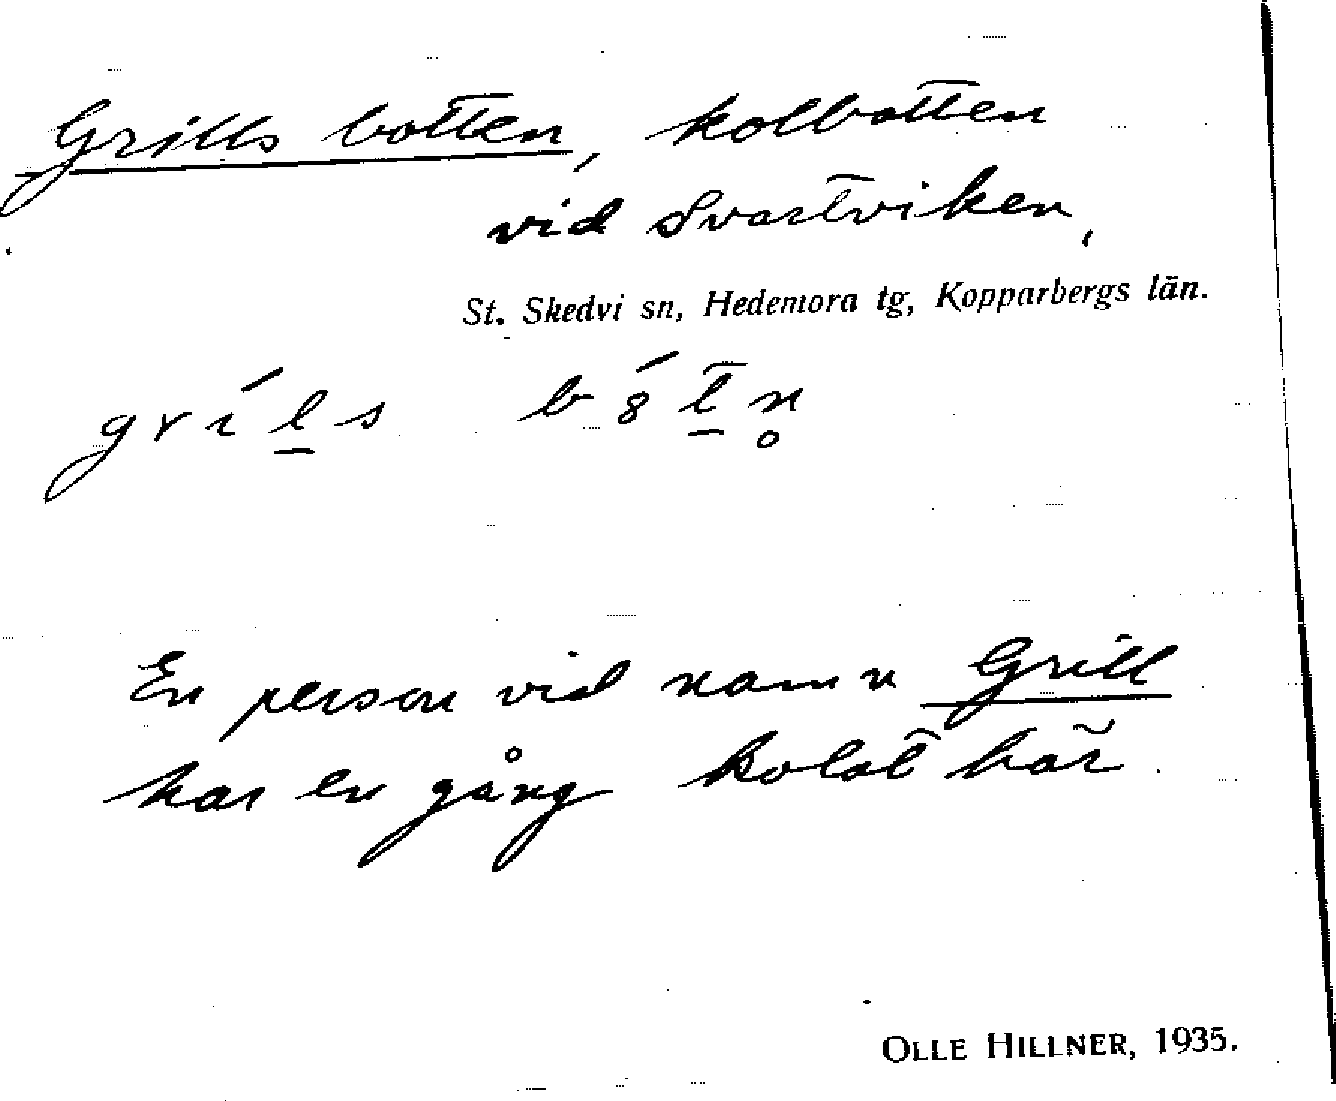 Grills botten, kolbotten
vid Svartviken,
St. Skedvi sn, Hedemora tg, Kopparbergs län.
gríl̲s bót̲n̥
En person vid namn Grill
har en gång kolat här
OLLE HILLNER, 1935.